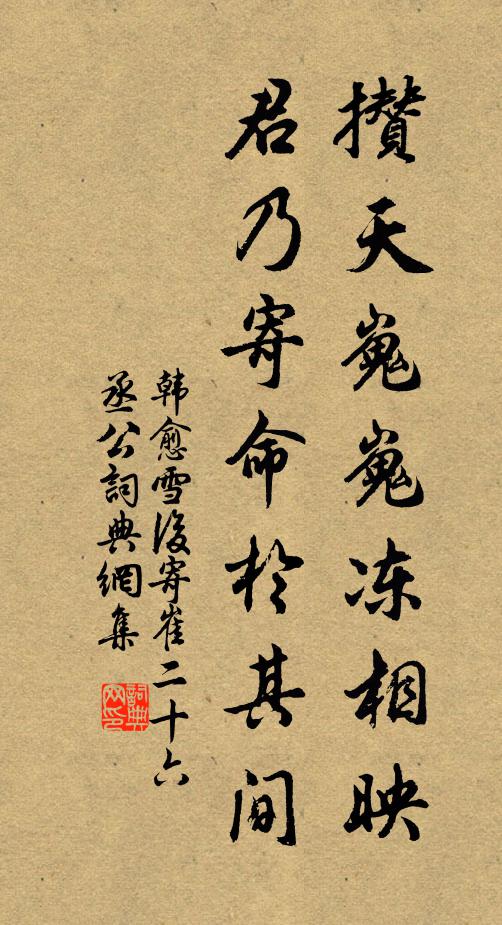 攅天嵬嵬冻相映
君乃寄命於其间
韩愈雪後寄崔二十六
丞公詞典網集
詞典
网印